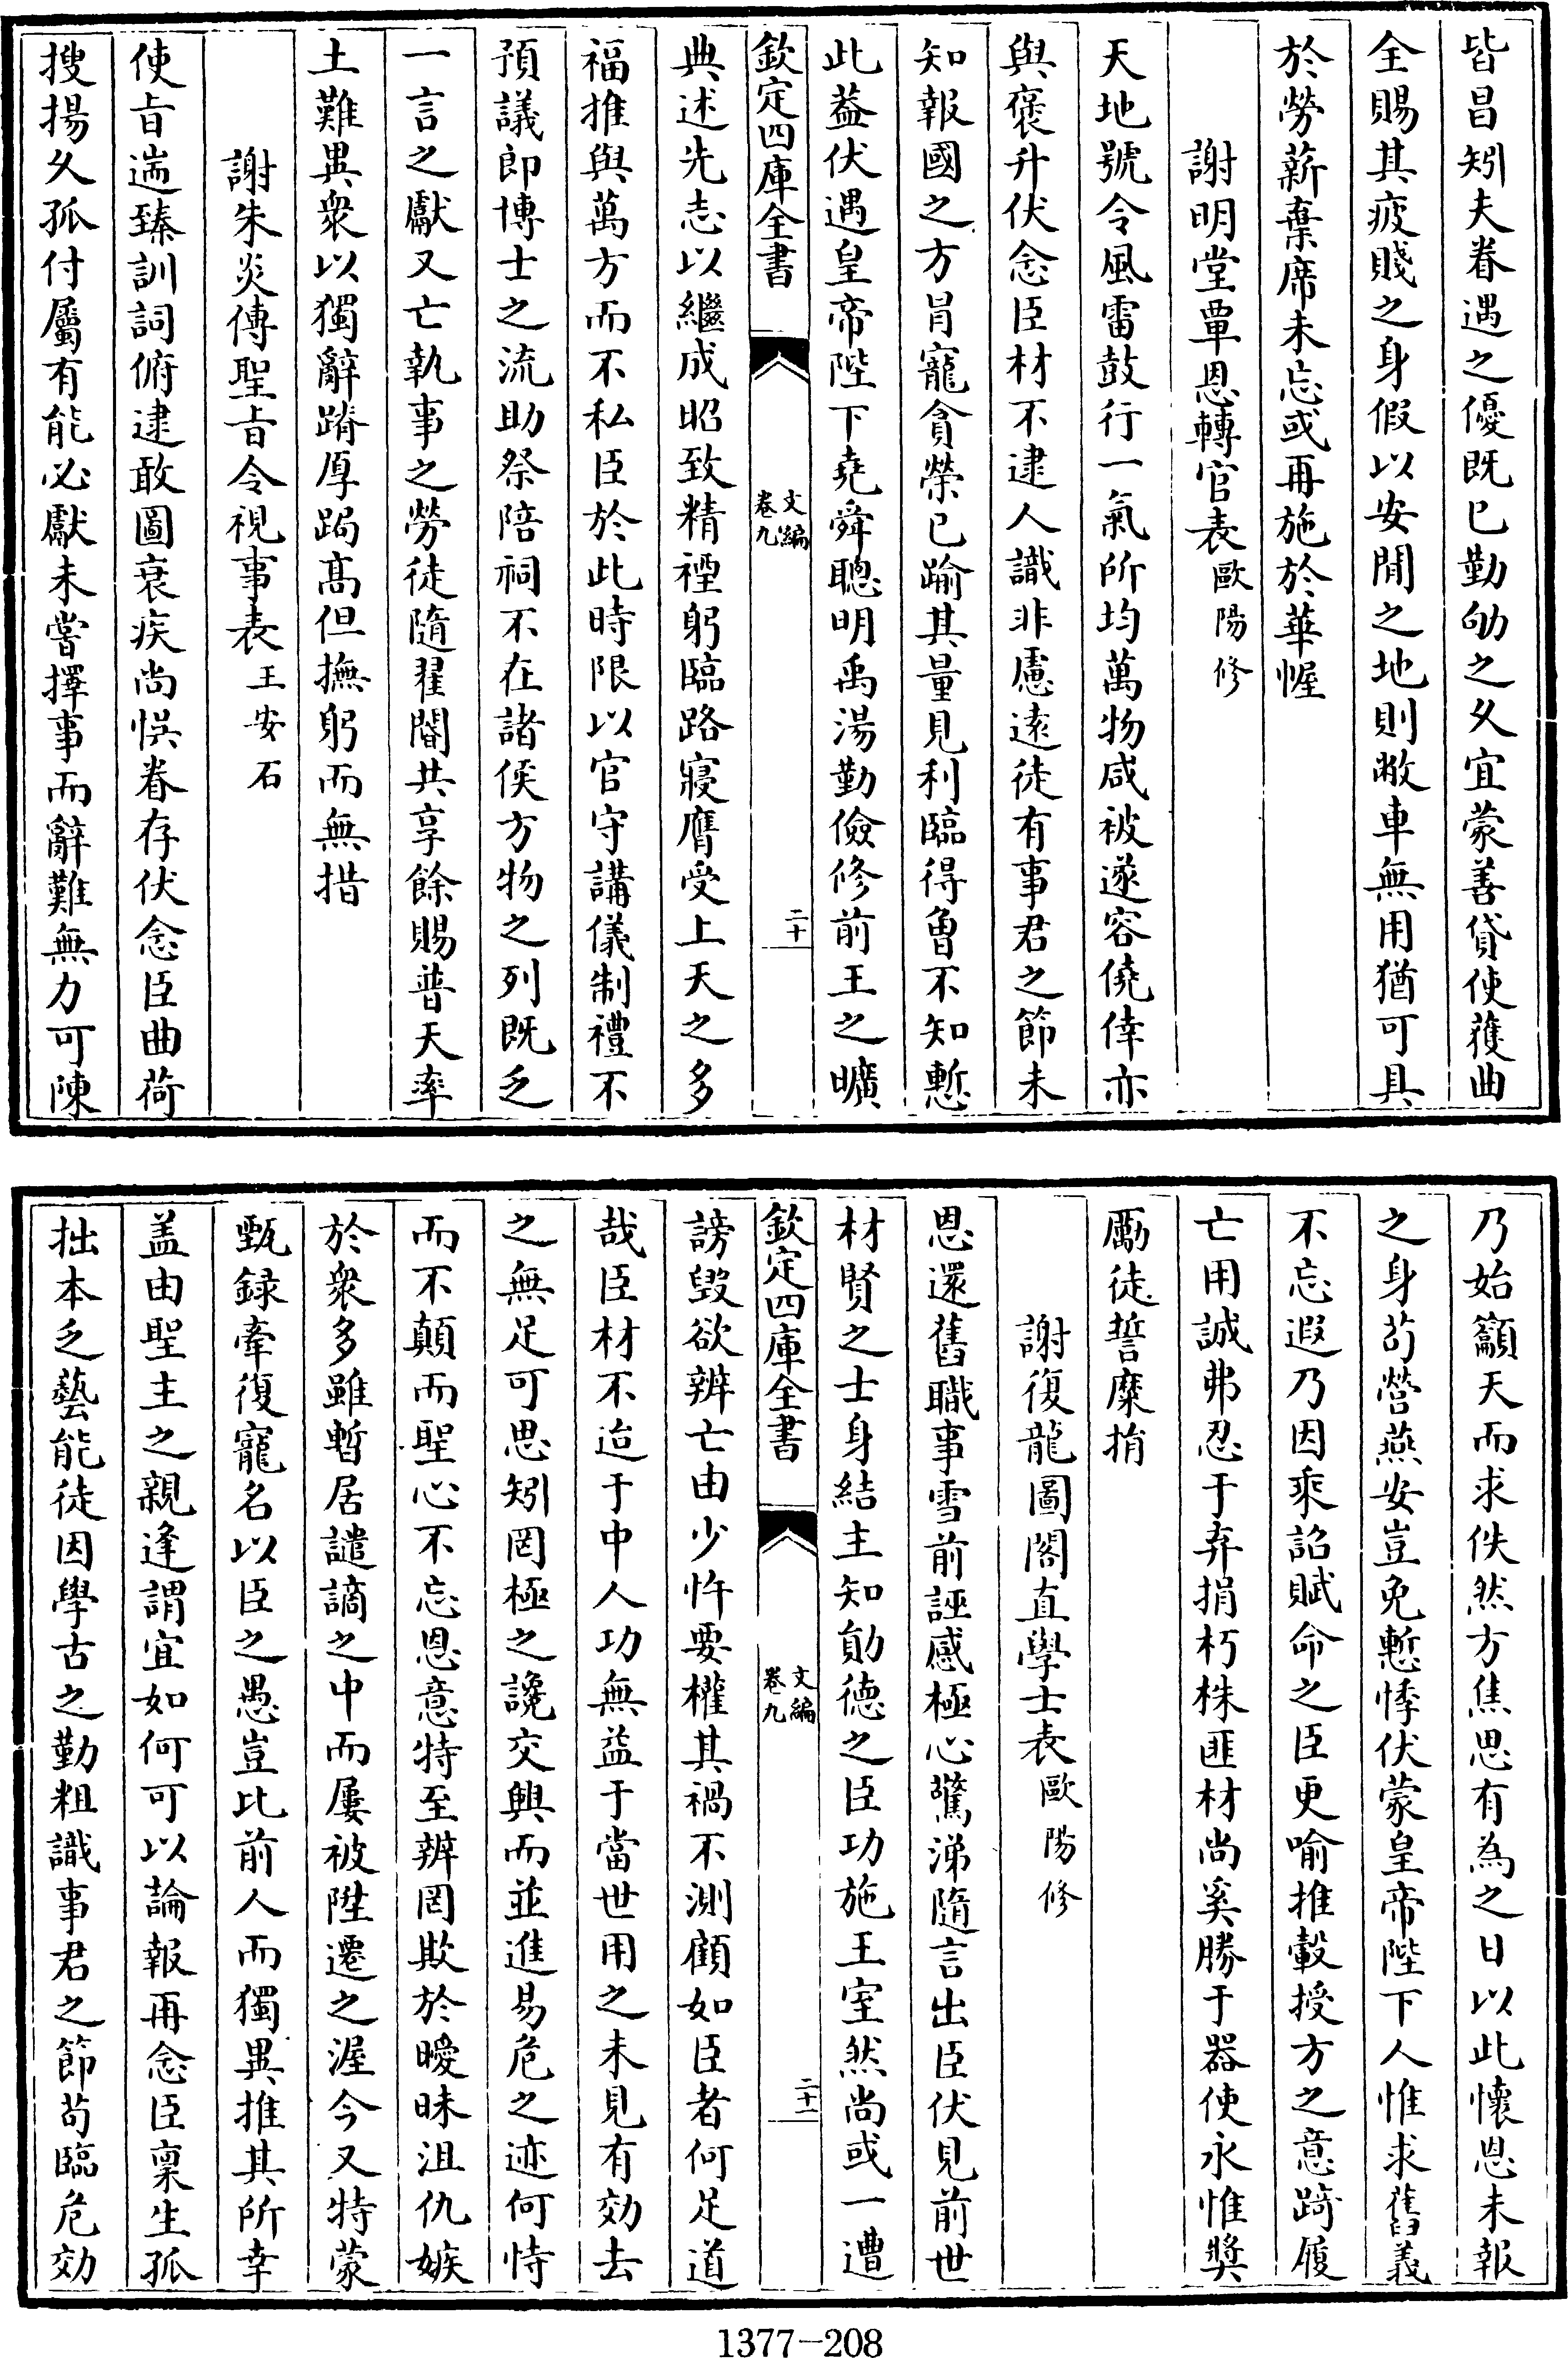 皆昌矧夫眷遇之優既已勤劬之久宜蒙善貸使獲曲
全賜其疲賤之身假以安閒之地則敝車無用猶可具
於勞薪棄席未忘或再施於華幄
謝明堂覃恩轉官表歐陽修
天地號令風雷鼓行一氣所均萬物咸被遂容僥倖亦
與褒升伏念臣材不逮人識非慮遠徒有事君之節未
知報國之方冐寵貪榮已踰其量見利臨得曾不知慙
此葢伏遇皇帝陛下堯舜聰明禹湯勤儉修前王之曠
欽定四庫全書
文編
卷九
二十
典述先志以繼成昭致精禋躬臨路寢膺受上天之多
福推與萬方而不私臣於此時限以官守講儀制禮不
預議郎博士之流助祭陪祠不在諸侯方物之列既乏
一言之獻又亡執事之勞徒隨翟閽共享餘賜普天率
土難異衆以獨辭蹐厚跼髙但撫躬而無措
謝朱炎傳聖㫖令視事表王安石
使㫖遄臻訓詞俯逮敢圖衰疾尚悞眷存伏念臣曲荷
搜揚久孤付屬有能必獻未嘗擇事而辭難無力可陳
乃始籲天而求佚然方焦思有為之日以此懷恩未報
之身茍營燕安豈免慙悸伏蒙皇帝陛下人惟求舊義
不忘遐乃因乘詔賦命之臣更喻推轂授方之意踦履
亡用誠弗忍于弃捐朽株匪材尚奚勝于器使永惟奬
勵徒誓糜捐
謝復龍圖閣直學士表歐陽修
恩還舊職事雪前誣感極心驚涕隨言出臣伏見前世
材賢之士身結主知勛德之臣功施王室然尚或一遭
欽定四庫全書
文編
卷九
二十一
謗毀欲辨亡由少忤要權其禍不測顧如臣者何足道
哉臣材不迨于中人功無益于當世用之未見有効去
之無足可思矧罔極之讒交興而並進易危之迹何恃
而不顛而聖心不忘恩意特至辨罔欺於曖昧沮仇嫉
於衆多雖暫居譴謫之中而屢被陞遷之渥今又特蒙
甄録牽復寵名以臣之愚豈比前人而獨異推其所幸
盖由聖主之親逢謂宜如何可以論報再念臣稟生孤
拙本乏藝能徒因學古之勤粗識事君之節茍臨危効
1377-208